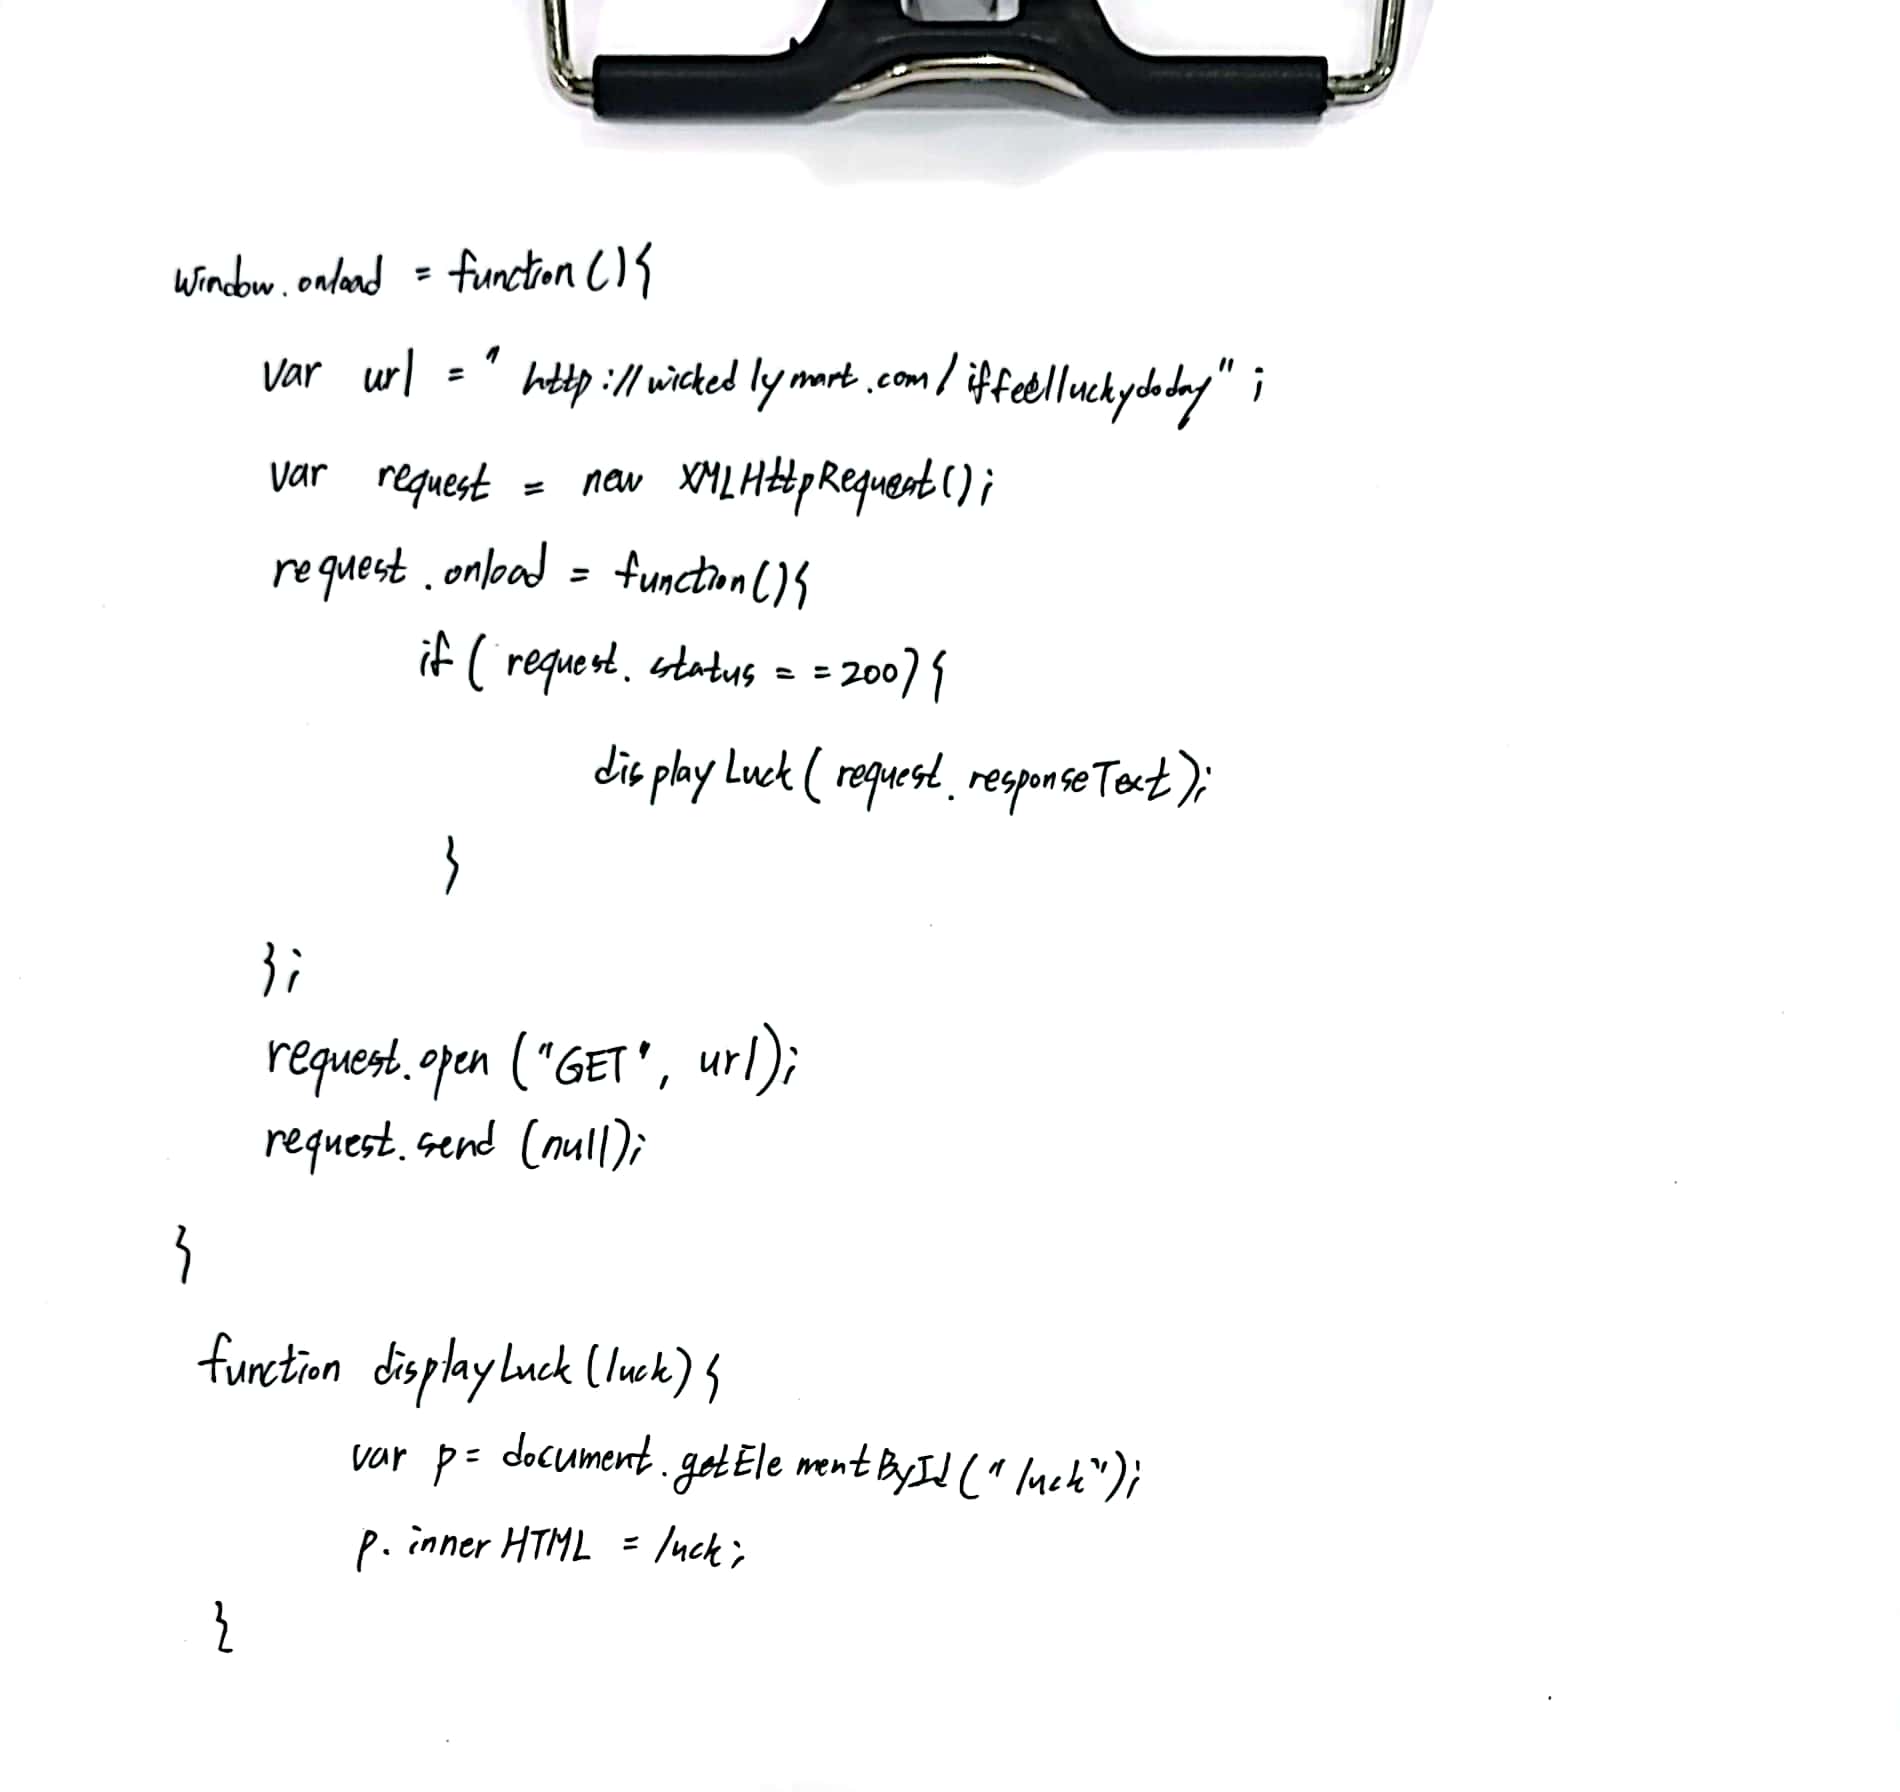 window.onload = function(){
var url = "http://wickedlymart.com/iffeelluckydoday";
var request = new XMLHttpRequest();
request.onload = function(){
if (request.status == 200){
displayLuck(request.responseText);
}
};
request.open ("GET", url);
request.send (null);
}
function displayLuck(luck){
var p = document.getElementById("luck");
p.innerHTML = luck;
}